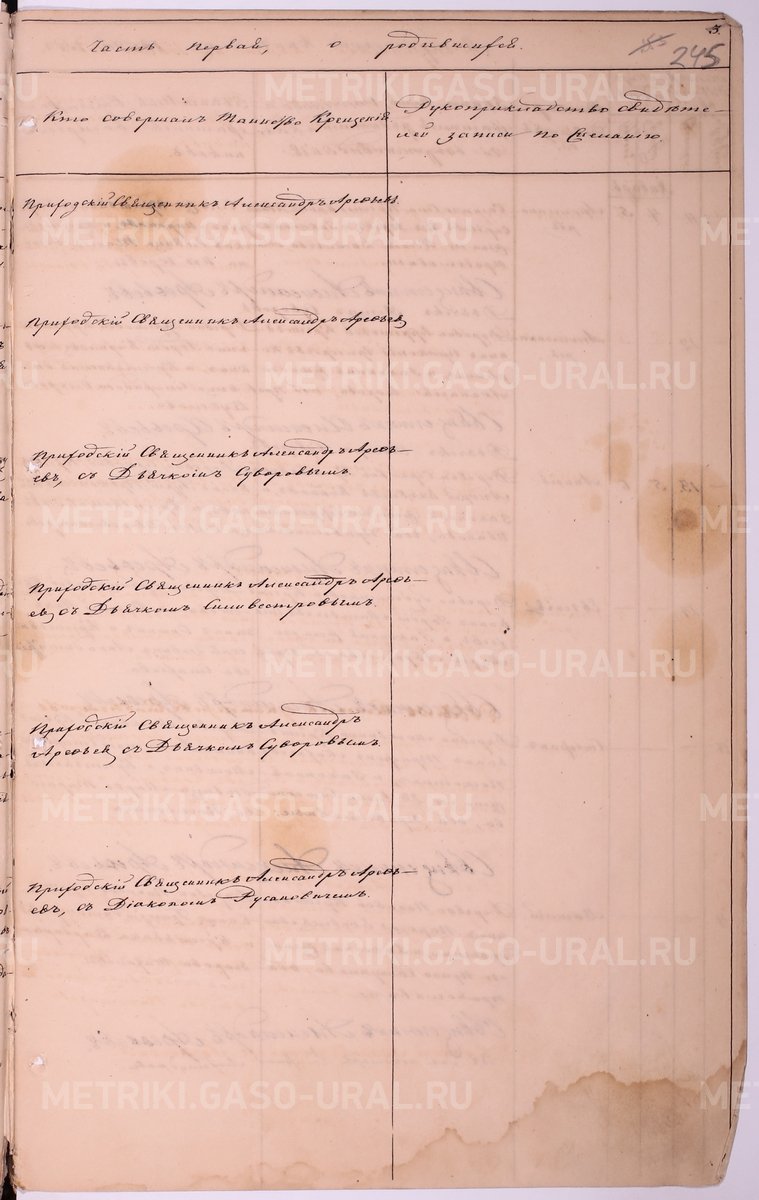 Часть первая, о родившихся.
3.
245
Кто совершалъ Таинство Крещенія.
Рукоприкладство свидѣте-
лей записи по желанію.
Приходскій Священникъ Александръ Арефьевъ.
Приходскій Священникъ Александръ Арефьевъ
Приходскій Священникъ Александръ Арефь-
евъ, съ Дьячкомъ Суворовымъ.
Приходскій Священникъ Александръ Арефь-
евъ съ Дьячкомъ Силивестровымъ.
Приходскій Священникъ Александръ
Арефьевъ съ Дьячкомъ Суворовымъ.
Приходскій Священникъ Александръ Арефь-
евъ, съ Діакономъ Русановичемъ.
METRIKI.GASO-URAL.RU